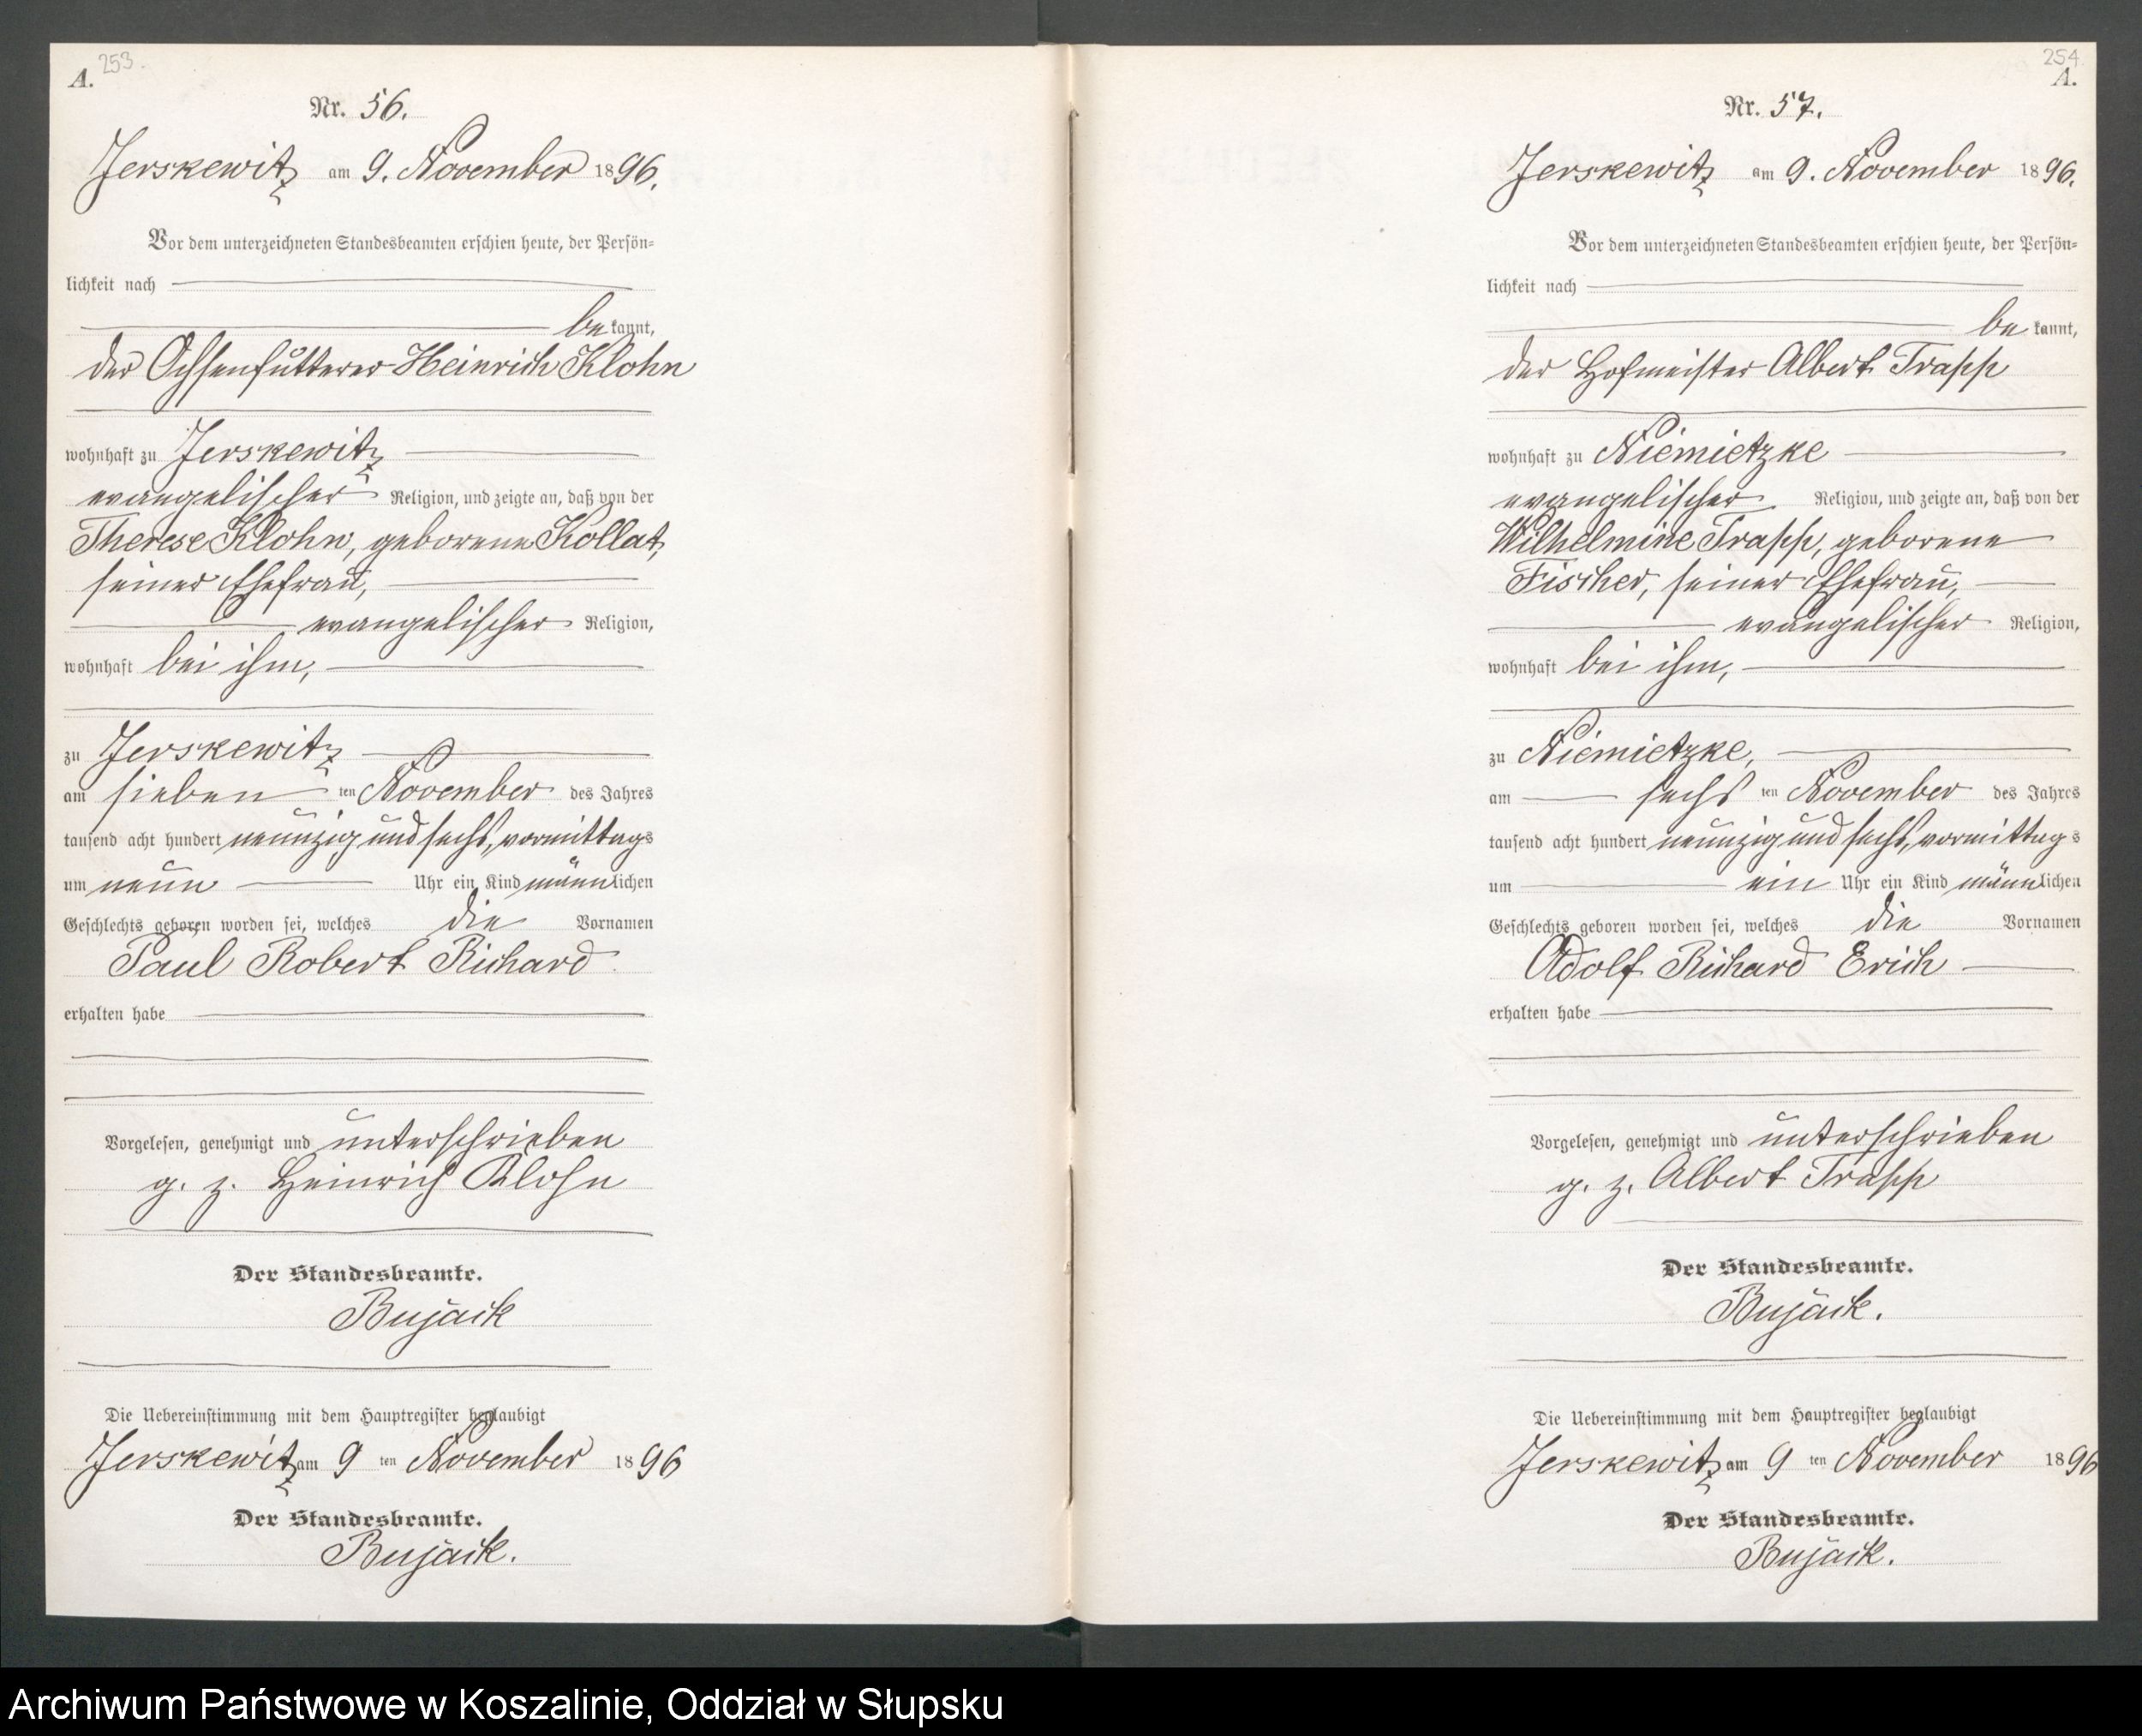 253.
A.
Nr. 56.
Jerskewitz am 9. November 1896.
Vor dem unterzeichneten Standesbeamten erschien heute, der Persön=
lichkeit nach
be kannt,
der Ochsenfütterer Heinrich Klohn
wohnhaft zu Jerskewitz
evangelischer Religion, und zeigte an, daß von der
Therese Klohn, geborene Kollat,
seiner Ehefrau,
evangelischer Religion,
wohnhaft bei ihm,
zu Jerskewitz
am sieben ten November des Jahres
tausend acht hundert neunzig und sechs, vormittags
um neun Uhr ein Kind männlichen
Geschlechts geboren worden sei, welches die Vornamen
Paul Robert Richard
erhalten habe
Vorgelesen, genehmigt und unterschrieben
g. z. Heinrich Klohn
Der Standesbeamte.
Bujack
Die Uebereinstimmung mit dem Hauptregister beglaubigt
Jerskewitz am 9 ten November 1896
Der Standesbeamte.
Bujack.
254
A.
Nr. 57.
Jerskewitz am 9. November 1896.
Vor dem unterzeichneten Standesbeamten erschien heute, der Persön=
lichkeit nach
be kannt,
der Hofmeister Albert Trapp
wohnhaft zu Niemietzke
evangelischer Religion, und zeigte an, daß von der
Wilhelmine Trapp, geborene
Fischer, seiner Ehefrau,
evangelischer Religion,
wohnhaft bei ihm,
zu Niemietzke,
am sechs ten November des Jahres
tausend acht hundert neunzig und sechs, vormittags
um ein Uhr ein Kind männlichen
Geschlechts geboren worden sei, welches die Vornamen
Adolf Richard Erich
erhalten habe
Vorgelesen, genehmigt und unterschrieben
g. z. Albert Trapp
Der Standesbeamte.
Bujack.
Die Uebereinstimmung mit dem Hauptregister beglaubigt
Jerskewitz am 9 ten November 1896
Der Standesbeamte.
Bujack.
Archiwum Państwowe w Koszalinie, Oddział w Słupsku